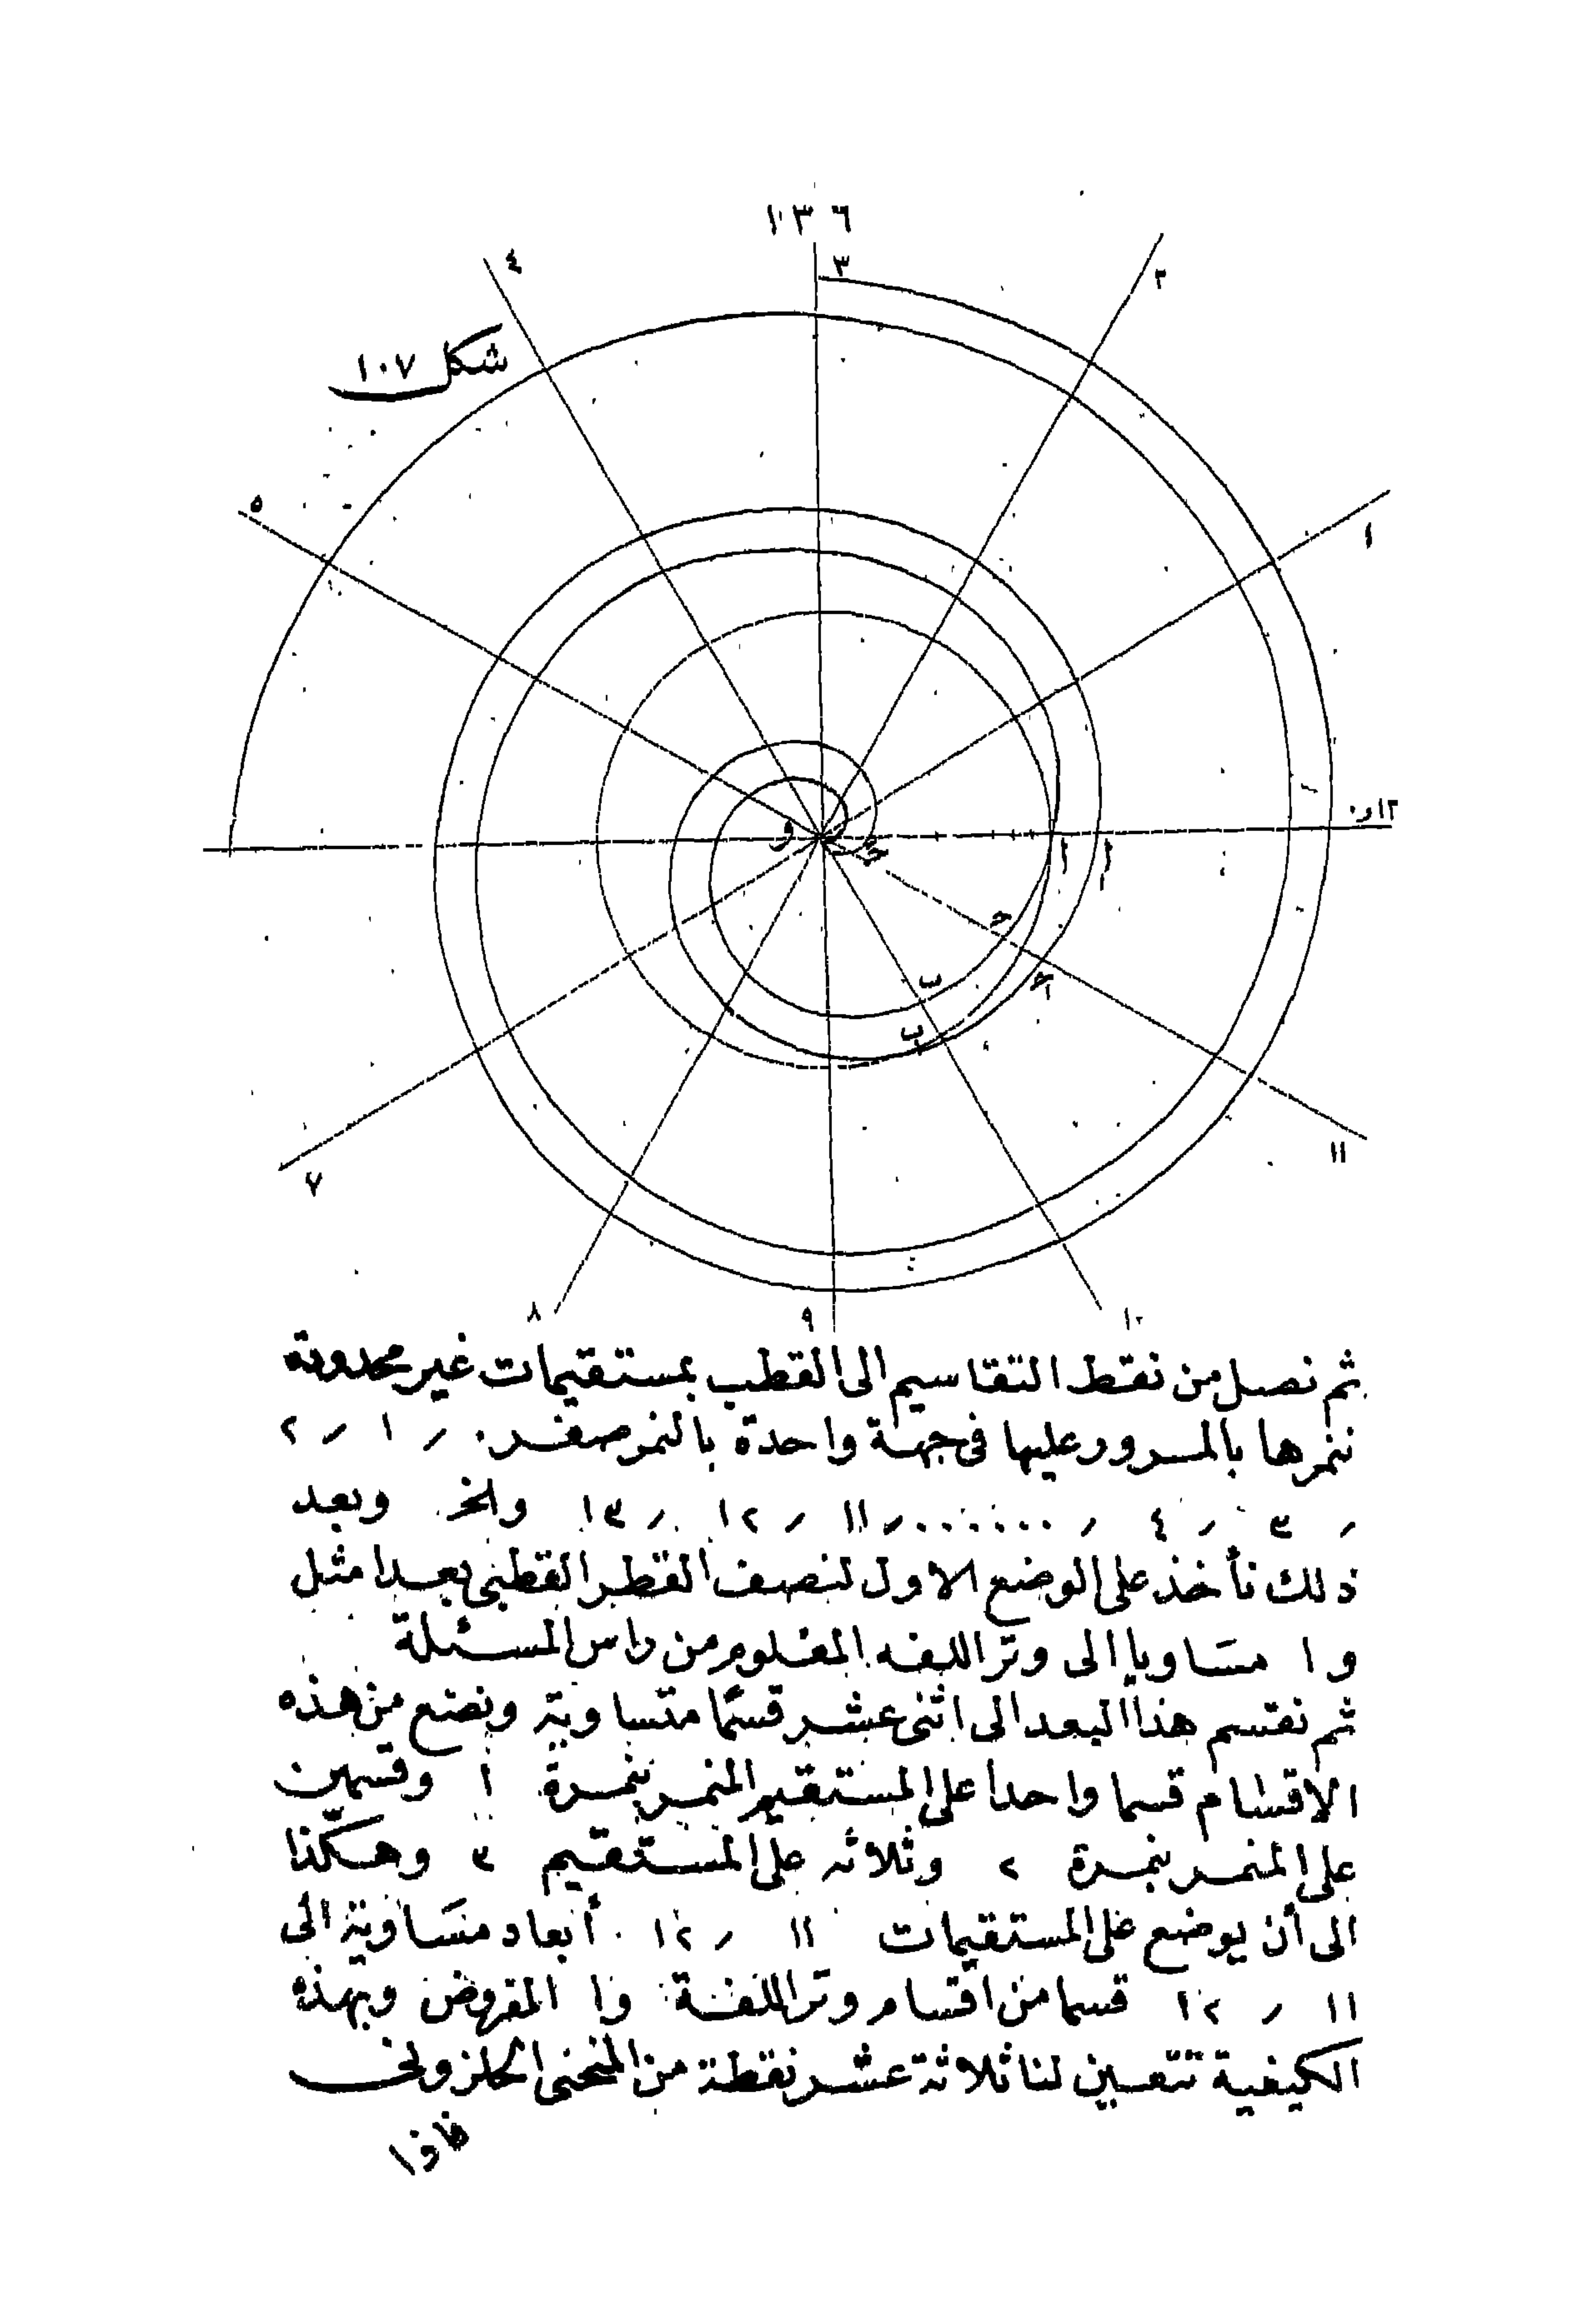 ١٣٦
٣
٤
٢
شكل ١٠٧
٥
١
١٢و٠
و
أ
أ
حـ
ب
ب
١١
٧
٨
٩
١٠
ثم نصل من نقط التقاسيم الى القطب بمستقيمات غير محدودة
ننمرها بالمرور عليها فى جهة واحدة بالنمر صفر ٠ ر ١ ر ٢
ر ٣ ر ٤ ر ........ ر ١١ ر ١٢ ر ١٣ والخ وبعد
ذلك نأخذ على الوضع الاول لنصف القطر القطبى بعدا مثل
و ا مساويا الى وتر اللفه المعلوم من راس المسئلة
ثم نقسم هذا البعد الى اثنى عشر قسمًا متساوية ونضع من هذه
الاقسام قسما واحدا على المستقيم المنمر بنمرة ١ وقسمين
على المنمر بنمرة ٢ وثلاثه على المستقيم ٣ وهكذا
الى أن يوضع على المستقيمات ١١ ر ١٢ أبعاد متساوية الى
١١ ر ١٢ قسما من اقسام وتر اللفة وا المفروض وبهذه
الكيفية تتعين لنا ثلاثة عشر نقطة من المنحنى الحلزونى
فاذا